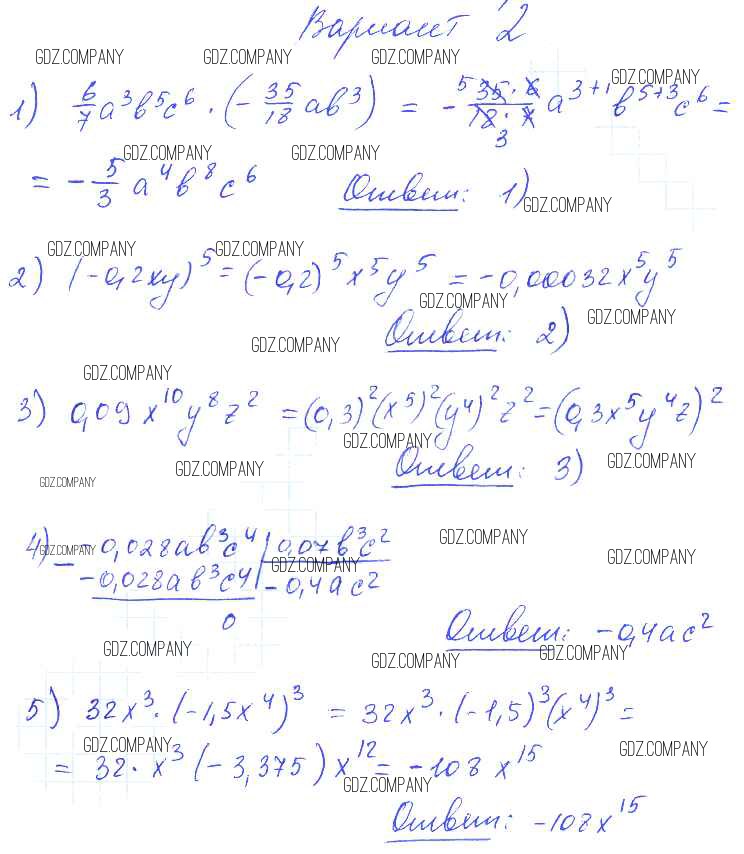 Вариант 2
GDZ.COMPANY GDZ.COMPANY GDZ.COMPANY GDZ.COMPANY
1) 6/7 a³b⁵c⁶ · (-35/18 ab³) = - 5 35·6/18·7 3 a³⁺¹b⁵⁺³c⁶ =
GDZ.COMPANY GDZ.COMPANY
= -5/3 a⁴b⁸c⁶ Ответ: 1)
GDZ.COMPANY
GDZ.COMPANY GDZ.COMPANY
2) (-0,2xy)⁵ = (-0,2)⁵x⁵y⁵ = -0,00032x⁵y⁵
GDZ.COMPANY
Ответ: 2)
GDZ.COMPANY GDZ.COMPANY
GDZ.COMPANY
3) 0,09x¹⁰y⁸z² = (0,3)²(x⁵)²(y⁴)²z² = (0,3x⁵y⁴z)²
GDZ.COMPANY
Ответ: 3)
GDZ.COMPANY GDZ.COMPANY GDZ.COMPANY
4) - -0,028ab³c⁴ | 0,07b³c²
GDZ.COMPANY GDZ.COMPANY GDZ.COMPANY GDZ.COMPANY
-0,028ab³c⁴ | -0,4ac²
0
Ответ: -0,4ac²
GDZ.COMPANY GDZ.COMPANY GDZ.COMPANY
5) 32x³·(-1,5x⁴)³ = 32x³·(-1,5)³(x⁴)³ =
GDZ.COMPANY GDZ.COMPANY
= 32·x³(-3,375)x¹² = -108x¹⁵
GDZ.COMPANY
Ответ: -108x¹⁵